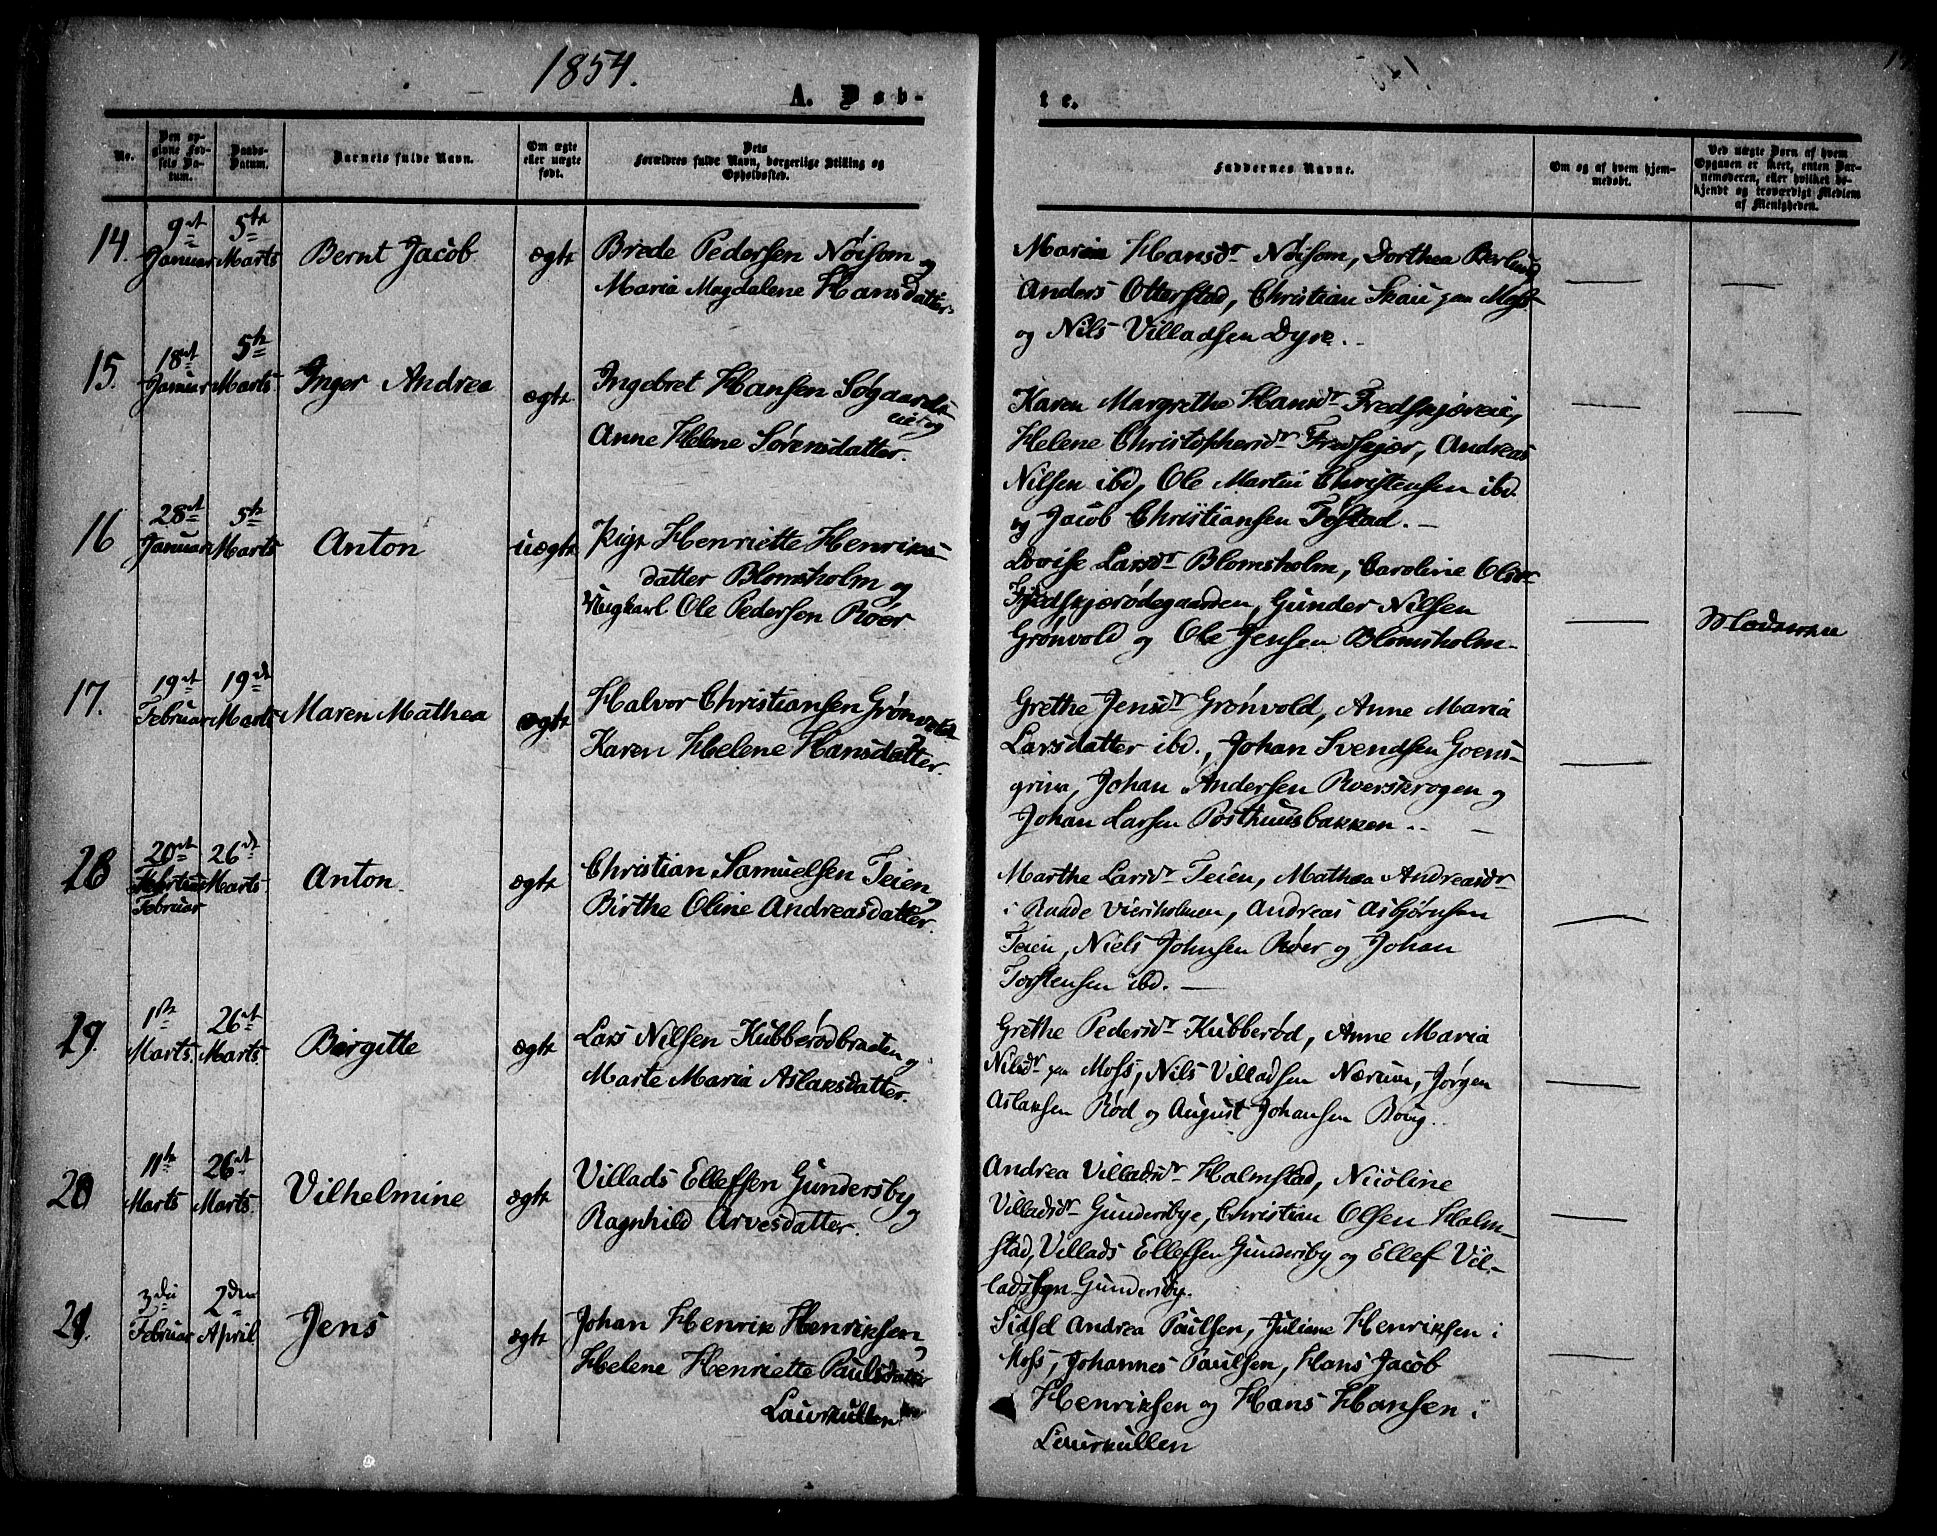 1854.
A. Døb-
te.
No.
Den opgivne Fødsels Datum.
Daabs-Datum.
Barnets fulde Navn.
Om ægte eller uægte født.
Dets Forældres fulde Navn, borgerlige Stilling og Opholdssted.
Faddernes Navne.
Om og af hvem hjemmedøbt.
Ved uægte Barn af hvem Opgaven er skeet, enten Barnemoderen, eller hvilket bekjendt og troværdigt Medlem af Menigheden.
14. 9de Januar 5te Marts Bernt Jacob ægte
Brede Pedersen Nøisom og
Maria Magdalene Hansdatter.
Maria Hansdr Nøisom, Dorthea Berlund
Anders Otterstad, Christian Skau paa Moss
og Nils Villadsen Dyre.
15. 18de Januar 5te Marts Inger Andrea ægte
Ingebret Hansen Søgaards-
eie og
Anne Helene Sørensdatter.
Karen Margrethe Hansdr Fredskjøreie,
Helene Christophersdr Fredskjør, Andreas
Nilsen ibd, Ole Martin Christensen ibd.
og Jacob Christiansen Tofstad.
16 28de Januar 5te Marts Anton uægte
Pige Henriette Henriks-
datter Blomsholm og
Ungkarl Ole Pedersen Roer
Lovise Larsdr Blomsholm, Caroline Olsdr
Fredskjørødegaarden, Gunder Nilsen
Grønvold og Ole Jensen Blomsholm.
Moderen
17. 19de Februar 19de Marts Maren Mathea ægte
Halvor Christiansen Grønvold
Karen Helene Hansdatter.
Grethe Jensdr Grønvold, Anne Maria
Larsdatter ibd., Johan Svendsen Goens-
grina, Johan Andersen Roerskrogen og
Johan Larsen Posthuusbakken.
18 20de Februar 26de Marts Anton. ægte
Christian Samuelsen Teien og
Birthe Oline Andreasdatter.
Marthe Larsdr Teien, Mathea Andreasdr
i Raade Viersholmen, Andreas Asbjørnsen
Teien, Niels Johnsen Roer og Johan
Torstensen ibd.
19. 1ste Marts. 26de Marts. Birgitte ægte
Lars Nilsen Kubberødbraaten og
Marte Maria Aslaksdatter.
Grethe Pedersdr Kubberød, Anne Maria
Nilsdr paa Moss, Nils Villadsen Nærum, Jørgen
Aslaksen Rød og August Johansen Boug.
20 11te Marts 26de Marts. Vilhelmine ægte
Villads Ellefsen Gundersby og
Ragnhild Arvesdatter.
Andrea Villadsdr Halmstad, Nicoline
Villadsdr Gundersbye, Christian Olsen Halm-
stad, Villads Ellefsen Gundersby og Ellef Vil-
ladsen Gundersby.
21. 3die Februar 2den April Jens ægte
Johan Henrik Henriksen og
Helene Henriette Paulsdatter
Laurkullen
Sidsel Andrea Paulsen, Juliane Henriksen i
Moss, Johannes Paulsen, Hans Jacob
Henriksen og Hans Hansen i
Laurkullen